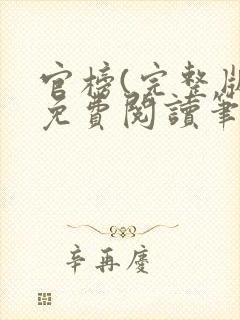 官榜(完整版
免費閱讀筆
辛再慶